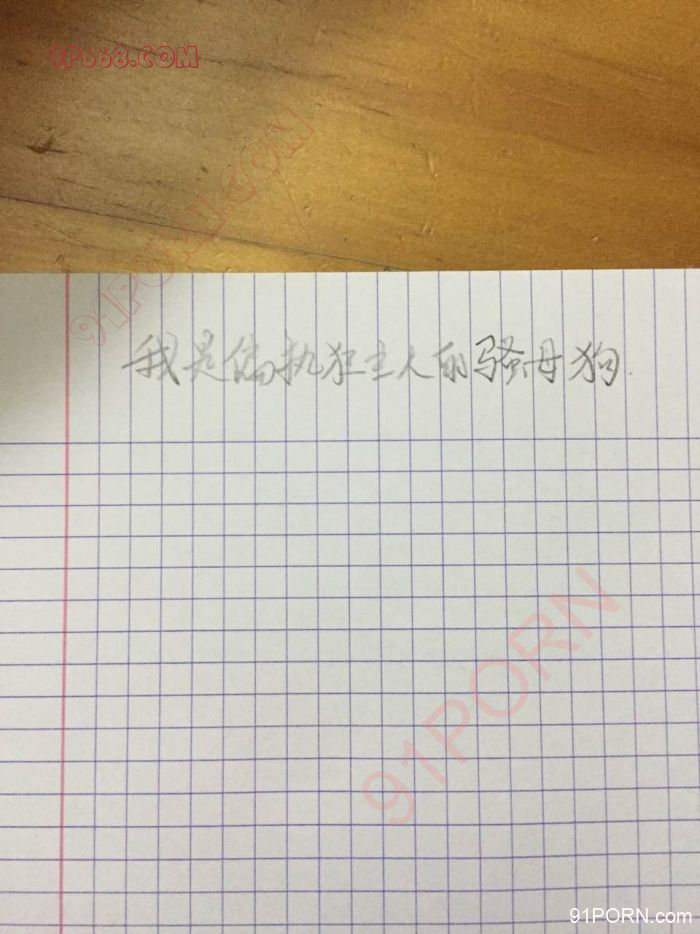 9P668.COM
91PORN.COM
我是偏执狂主人的骚母狗.
91PORN
91PORN.COM